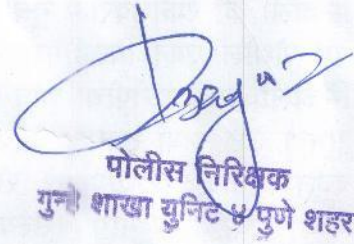 पोलीस निरिक्षक
गुन्हे शाखा युनिट ४ पुणे शहर